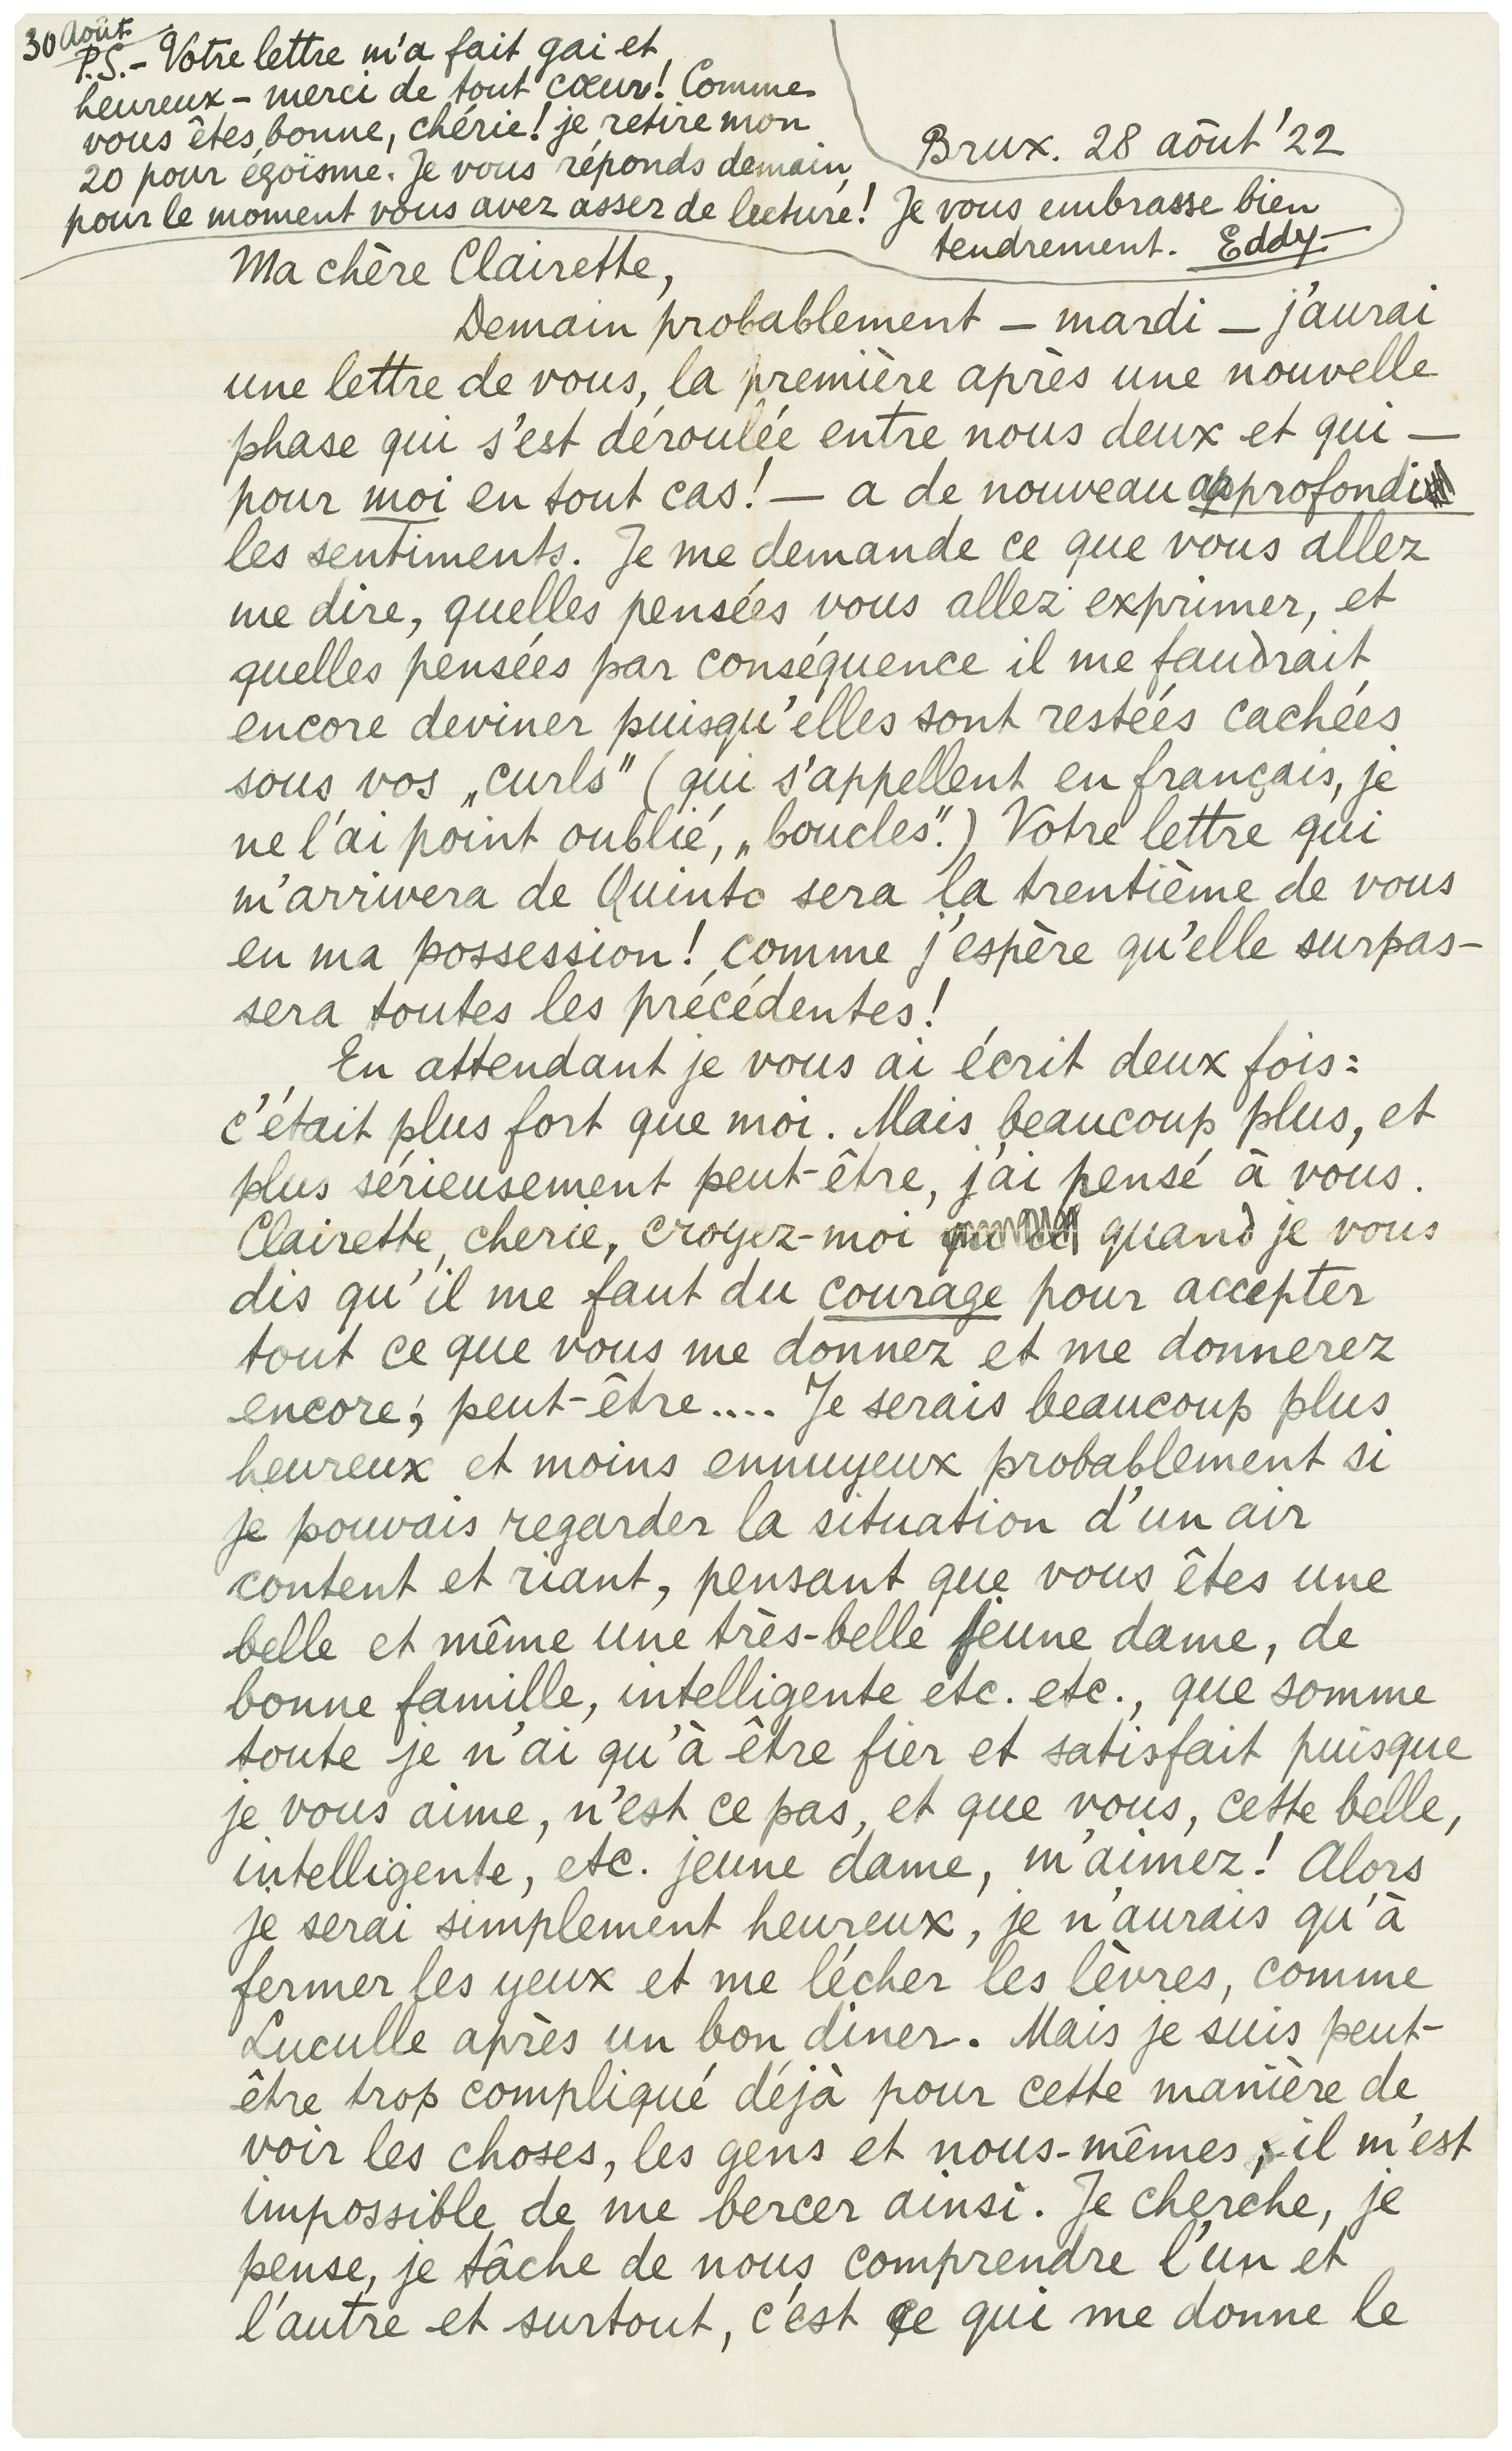 30 Août
P.S. – Votre lettre m'a fait gai et
heureux – merci de tout cœur! Comme
vous êtes bonne, chérie! je retire mon
20 pour égoïsme. Je vous réponds demain,
pour le moment vous avez assez de lecture! Je vous embrasse bien
tendrement. Eddy
Brux. 28 aôut '22
Ma chère Clairette,
Demain probablement – mardi – j'aurai
une lettre de vous, la première après une nouvelle
phase qui s'est déroulée entre nous deux et qui –
pour moi en tout cas! – a de nouveau approfondi
les sentiments. Je me demande ce que vous allez
me dire, quelles pensées vous allez exprimer, et
quelles pensées par conséquence il me faudrait
encore deviner puisqu'elles sont restées cachées
sous vos „curls" (qui s'appellent en français, je
ne l'ai point oublié, „boucles".) Votre lettre qui
m'arrivera de Quinto sera la trentième de vous
en ma possession! comme j'espère qu'elle surpas-
sera toutes les précédentes!
En attendant je vous ai écrit deux fois:
c'était plus fort que moi. Mais beaucoup plus, et
plus sérieusement peut-être, j'ai pensé à vous.
Clairette, cherie, croyez-moi quand je vous
dis qu'il me faut du courage pour accepter
tout ce que vous me donnez et me donnerez
encore, peut-être.... Je serais beaucoup plus
heureux et moins ennuyeux probablement si
je pouvais regarder la situation d'un air
content et riant, pensant que vous êtes une
belle et même une très-belle jeune dame, de
bonne famille, intelligente etc. etc., que somme
toute je n'ai qu'à être fier et satisfait puisque
je vous aime, n'est ce pas, et que vous, cette belle,
intelligente, etc. jeune dame, m'aimez! Alors
je serai simplement heureux, je n'aurais qu'à
fermer les yeux et me lécher les lèvres, comme
Luculle après un bon diner. Mais je suis peut-
être trop compliqué déjà pour cette manière de
voir les choses, les gens et nous-mêmes; il m'est
impossible de me bercer ainsi. Je cherche, je
pense, je tâche de nous comprendre l'un et
l'autre et surtout, c'est ce qui me donne le